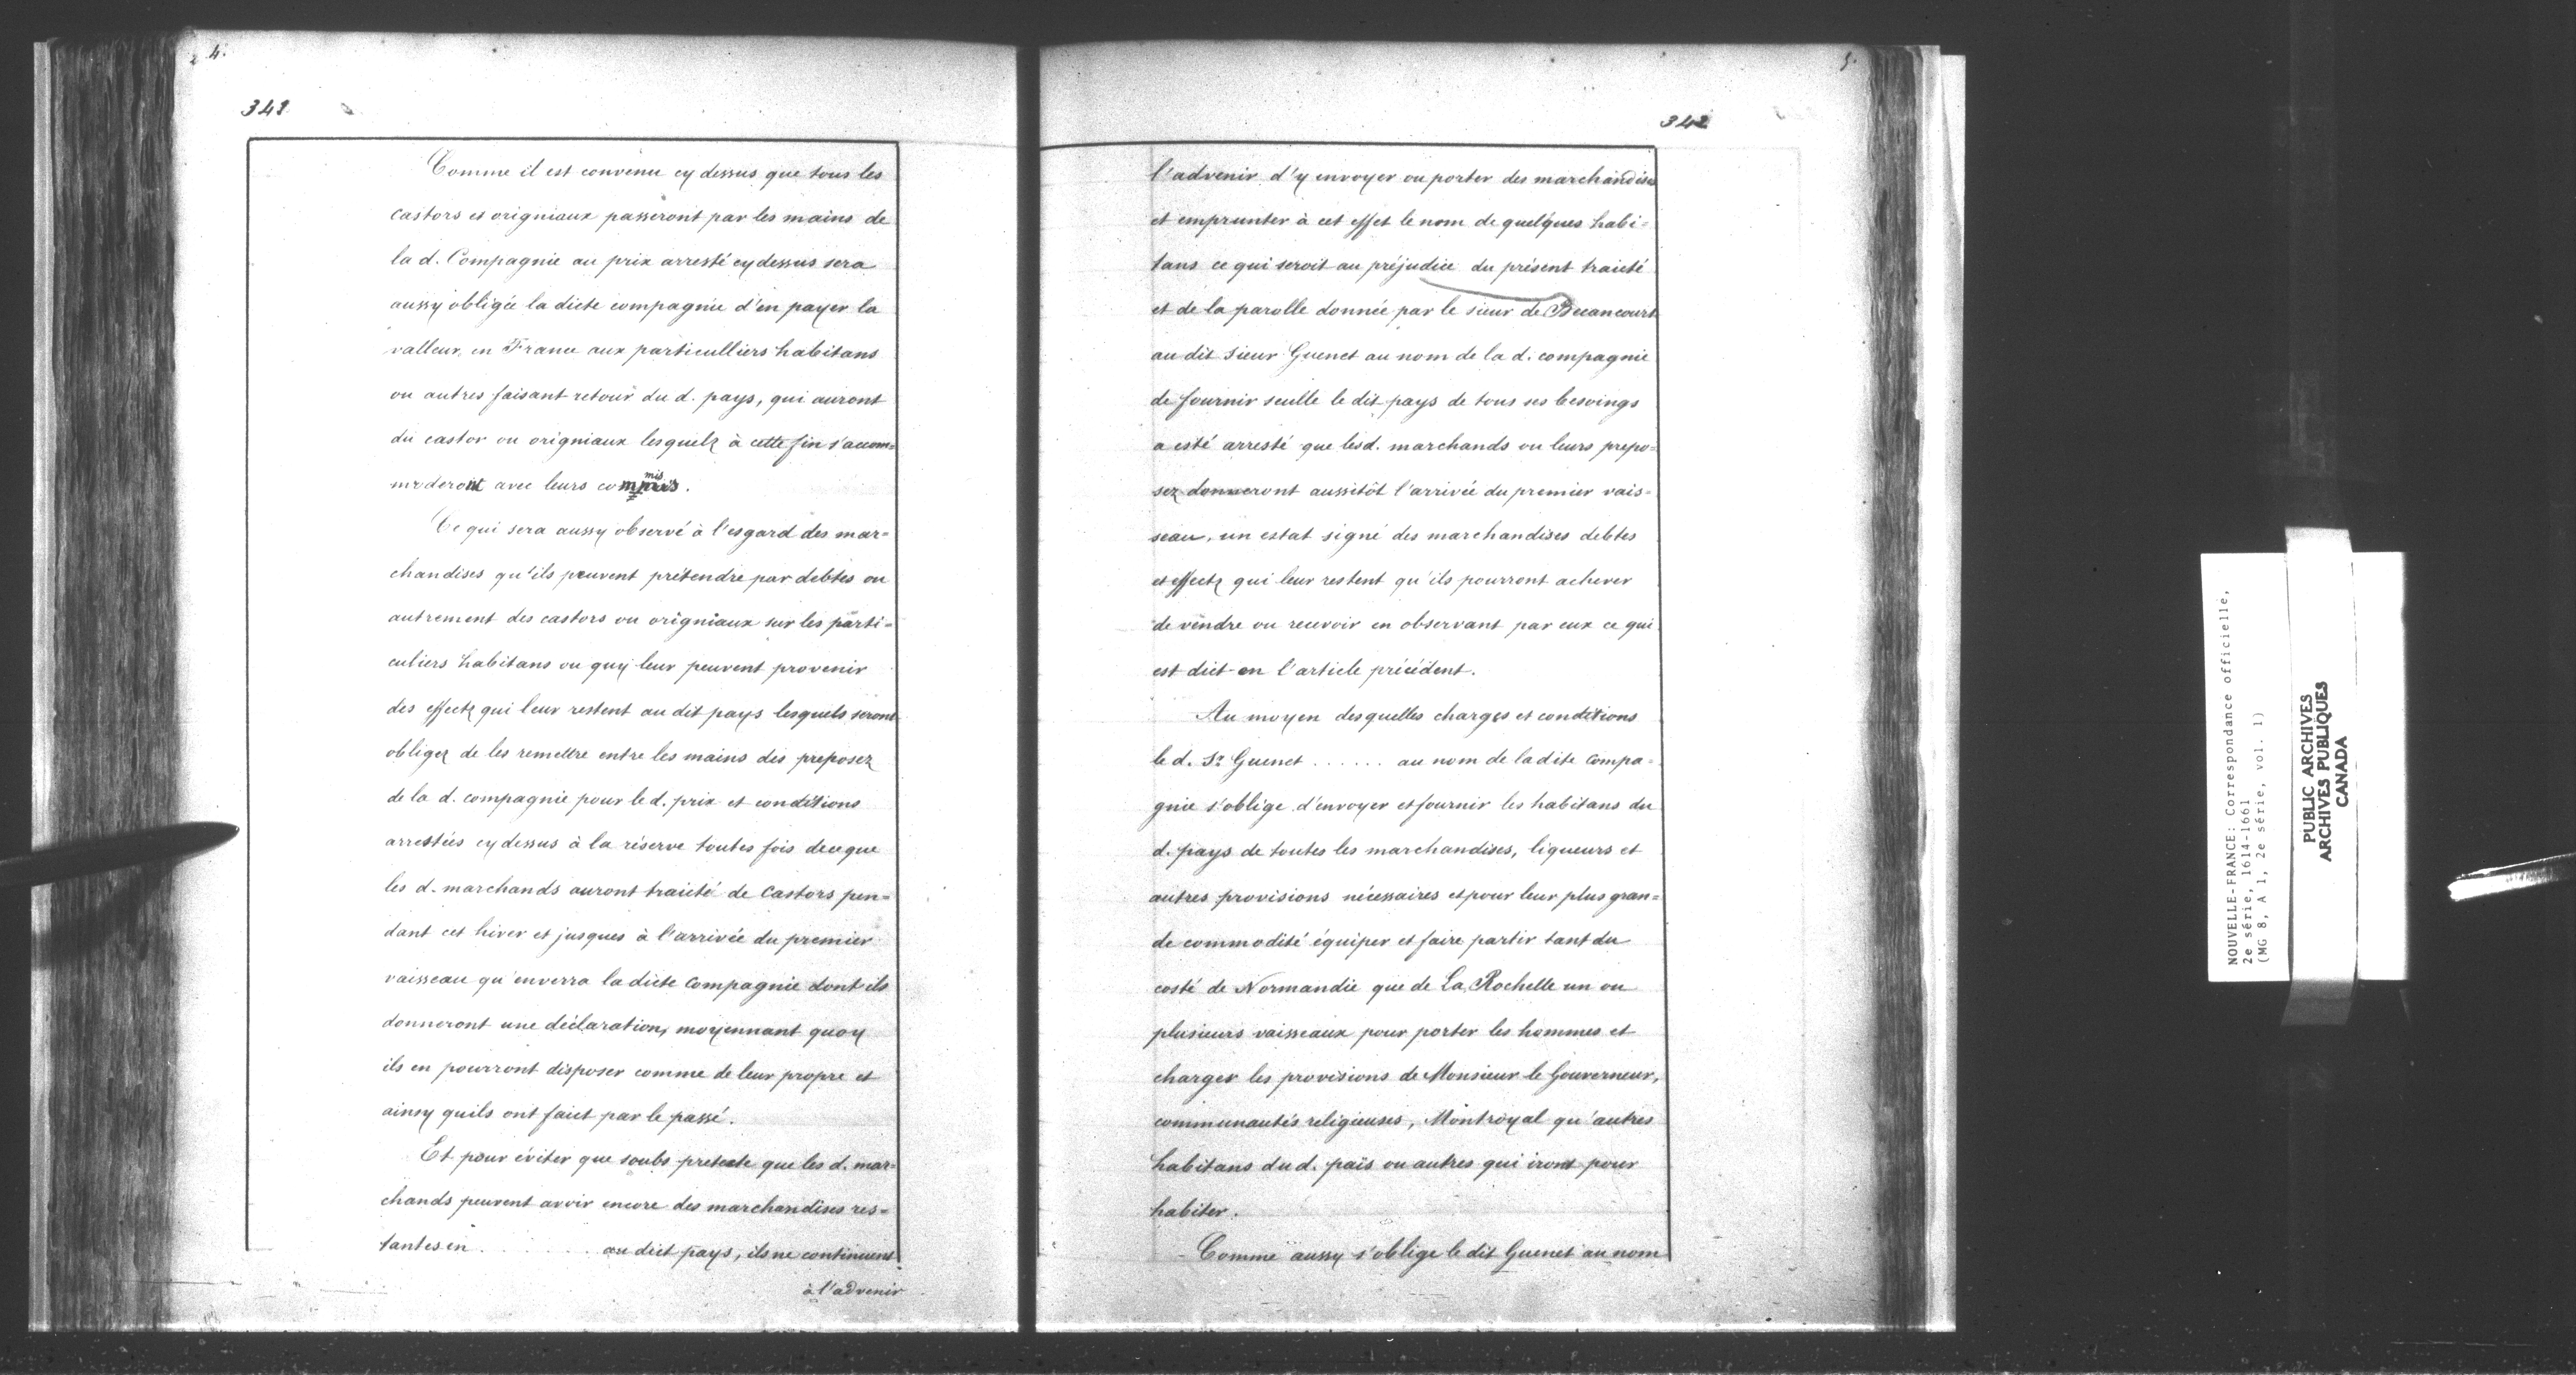 4.
341
Comme il est convenu cy dessus que tous les
castors et origniaux passeront par les mains de
la d. Compagnie au prix arresté cy dessus sera
aussy obligée la dicte compagnie d'en payer la
valleur, en France aux particulliers habitans
ou autres faisant retour du d. pays, qui auront
du castor ou origniaux lesquelz à cette fin s'accom=
moderont avec leurs commis.
Ce qui sera aussy observé à l'esgard des mar=
chandises qu'ils peuvent prétendre par debtes ou
autrement des castors ou origniaux sur les parti=
culiers habitans ou quy leur peuvent provenir
des effectz qui leur restent au dit pays lesquels seront
obligez de les remettre entre les mains des preposez
de la d. compagnie pour le d. prix et conditions
arrestées cy dessus à la réserve toutes fois de ce que
les d. marchands auront traicté de Castors pen=
dant cet hiver et jusques à l'arrivée du premier
vaisseau qu'enverra la dicte Compagnie dont ils
donneront une déclaration, moyennant quoy
ils en pourront disposer comme de leur propre et
ainsy quils ont faict par le passé.
Et pour éviter que soubs pretexte que les d. mar=
chands peuvent avoir encore des marchandises res=
tantes en . . . . . . au dict pays, ils ne continuent
à l'advenir
5.
342
l'advenir d'y envoyer ou porter des marchandises
et emprunter à cet effet le nom de quelques habi=
tans ce qui seroit au préjudice du présent traicté
et de la parolle donnée par le sieur de Becancourt
au dit sieur Guenet au nom de la d. compagnie
de fournir seulle le dit pays de tous ses besoings
a esté arresté que lesd. marchands ou leurs prepo=
sez donneront aussitôt l'arrivée du premier vais=
seau, un estat signé des marchandises debtes
et effectz qui leur restent qu'ils pourront achever
de vendre ou recevoir en observant par eux ce qui
est dict en l'article précédent.
Au moyen desquelles charges et conditions
le d. Sr Guenet . . . . . . au nom de la dite Compa=
gnie s'oblige d'envoyer et fournir les habitans du
d. pays de toutes les marchandises, liqueurs et
autres provisions nécessaires et pour leur plus gran=
de commodité équiper et faire partir tant du
costé de Normandie que de La Rochelle un ou
plusieurs vaisseaux pour porter les hommes et
charger les provisions de Monsieur le Gouverneur,
communautés religieuses, Montroyal qu'autres
habitans du d. païs ou autres qui iront pour
habiter.
Comme aussy s'oblige le dit Guenet au nom
NOUVELLE-FRANCE: Correspondance officielle,
2e série, 1614-1661
(MG 8, A 1, 2e série, vol. 1)
PUBLIC ARCHIVES
ARCHIVES PUBLIQUES
CANADA